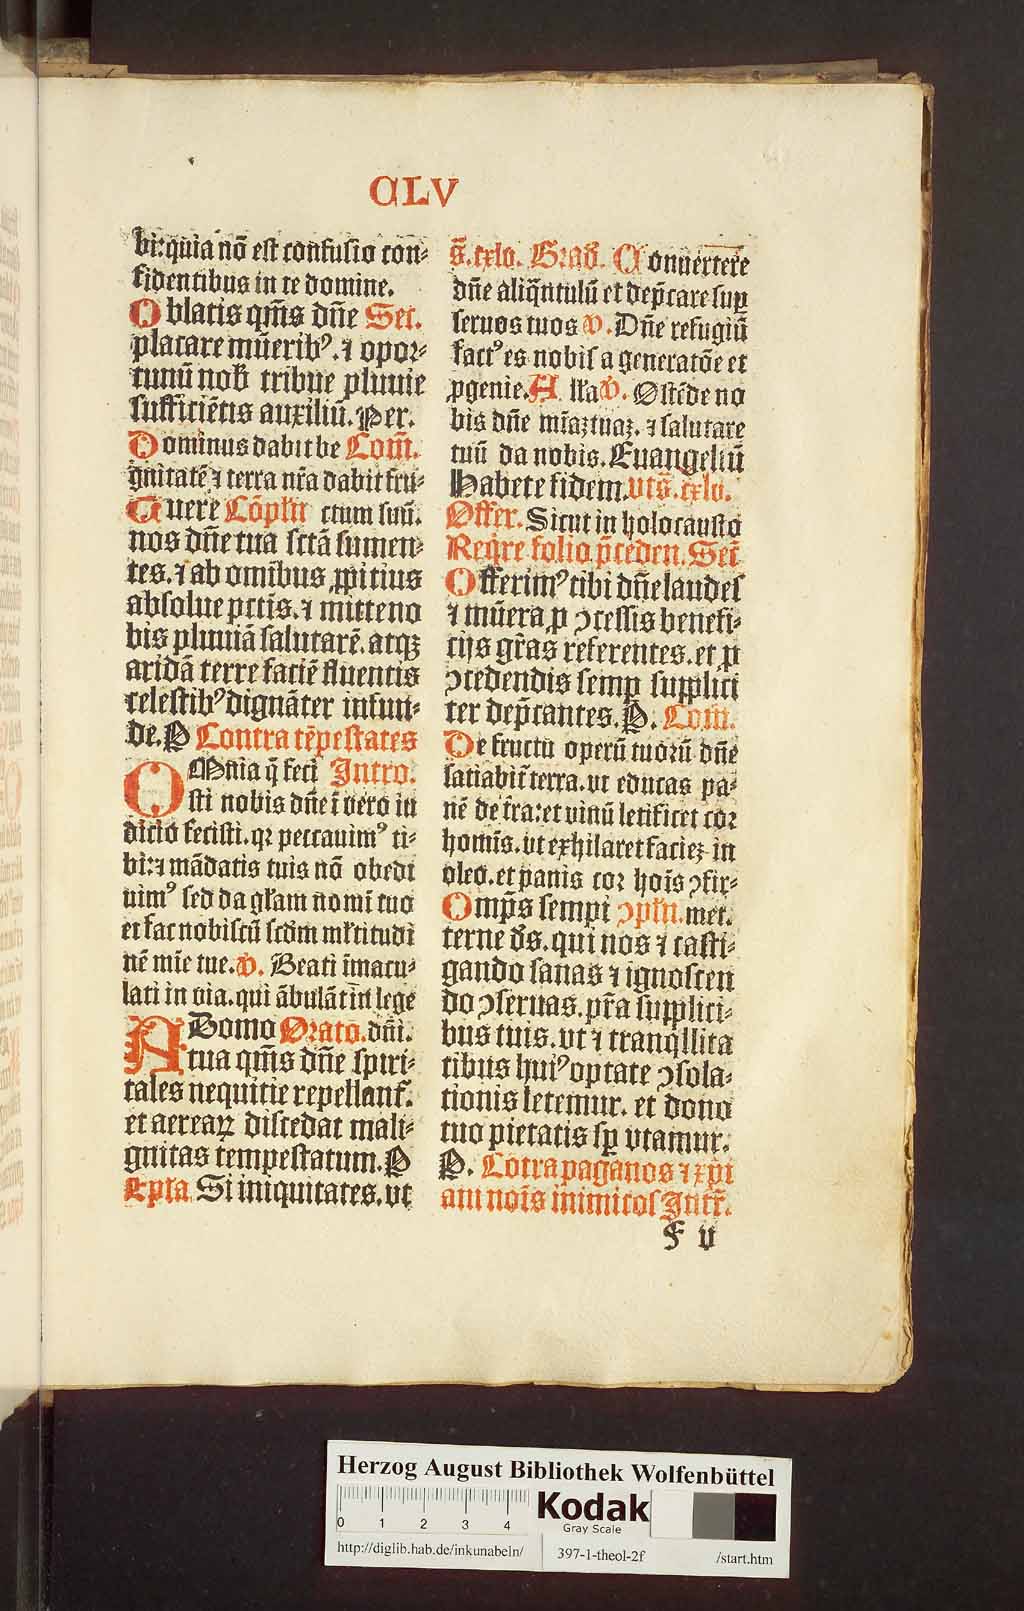 CLV
bi: quia nō est confusio con⸗
fidentibus in te domine.
Oblatis qm̄s dn̄e Sec.
placare mūeribꝰ. ⁊ opor⸗
tunū nob̄ tribue pluuie
sufficiētis auxiliū. Per.
Dominus dabit be Com̄.
gnitatē ⁊ terra nr̄a dabit fru⸗
Tuere Cōpln̄ ctum suū.
nos dn̄e tua sctā sumen⸗
tes. ⁊ ab omībus ꝓpitius
absolue pctis. ⁊ mitte no
bis pluuiā salutarē. atqꝫ
aridā terre faciē fluentis
celestibꝰ dignāter infun⸗
de. P Contra tēpestates
OMnia q̄ feci Intro.
sti nobis dn̄e ī vero iu
dicio fecisti. qꝛ peccauimꝰ ti⸗
bi: ⁊ mādatis tuis nō obedi
uimꝰ sed da gl̄am nomī tuo
et fac nobiscū scd̄m ml̄titudi
nē mīe tue. V. Beati īmacu⸗
lati in via. qui ābulāt in lege
A Domo Orato. dn̄i.
tua qm̄s dn̄e spiri⸗
tales nequitie repellanť.
et aereaꝝ discedat mali⸗
gnitas tempestatum. P
Epľa Si iniquitates. vt
s̄. cxlv. Grad̄. Conuertere
dn̄e aliqn̄tulū et dep̄care suꝑ
seruos tuos V. Dn̄e refugiū
factꝰ es nobis a generatōe et
ꝓgenie. A lľa V. Ostēde no
bis dn̄e mīaꝫ tuaꝫ. ⁊ salutare
tuū da nobis. Euangeliū
Habete fidem. vts̄. cxlv.
Offer. Sicut in holocausto
Reqr̄e folio p̄ceden. Sec̄
Offerimꝰ tibi dn̄e laudes
⁊ mūera ꝓ ↄcessis benefi⸗
cijs gr̄as referentes. et ꝓ
ↄcedendis semꝑ supplici
ter dep̄cantes. P. Com̄.
De fructu operū tuoꝛū dn̄e
satiabiť terra. vt educas pa⸗
nē de t̄ra: et vinū letificet coꝛ
homīs. vt exhilaret facieꝫ in
oleo. et panis coꝛ hoīs ↄfir⸗
Omp̄s sempi ↄpľn. met.
terne ds̄. qui nos ⁊ casti⸗
gando sanas ⁊ ignoscen
do ↄseruas. pr̄a supplici⸗
bus tuis. vt ⁊ tranqllita
tibus huiꝰ optate ↄsola⸗
tionis letemur. et dono
tuo pietatis sꝑ vtamur.
P. Cōtra paganos ⁊ xp̄i
am nois inimicos Intr̄.
F v
Herzog August Bibliothek Wolfenbüttel
0 1 2 3 4
Kodak
Gray Scale
http://diglib.hab.de/inkunabeln/ 397-1-theol-2f /start.htm